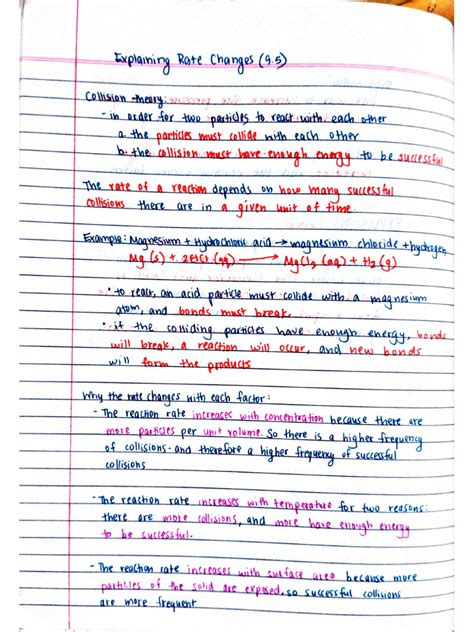 Explaining Rate Changes (9.5)
Collision theory:
- in order for two particles to react with each other
a. the particles must collide with each other
b. the collision must have enough energy to be successful
The rate of a reaction depends on how many successful
collisions there are in a given unit of time
Example: Magnesium + Hydrochloric acid → magnesium chloride + hydrogen
Mg (s) + 2HCl (aq) → MgCl2 (aq) + H2 (g)
• to react, an acid particle must collide with a magnesium
atom, and bonds must break.
• if the colliding particles have enough energy, bonds
will break, a reaction will occur, and new bonds
will form the products
Why the rate changes with each factor:
- The reaction rate increases with concentration because there are
more particles per unit volume. So there is a higher frequency
of collisions and therefore a higher frequency of successful
collisions
- The reaction rate increases with temperature for two reasons:
there are more collisions, and more have enough energy
to be successful.
- The reaction rate increases with surface area because more
particles of the solid are exposed, so successful collisions
are more frequent